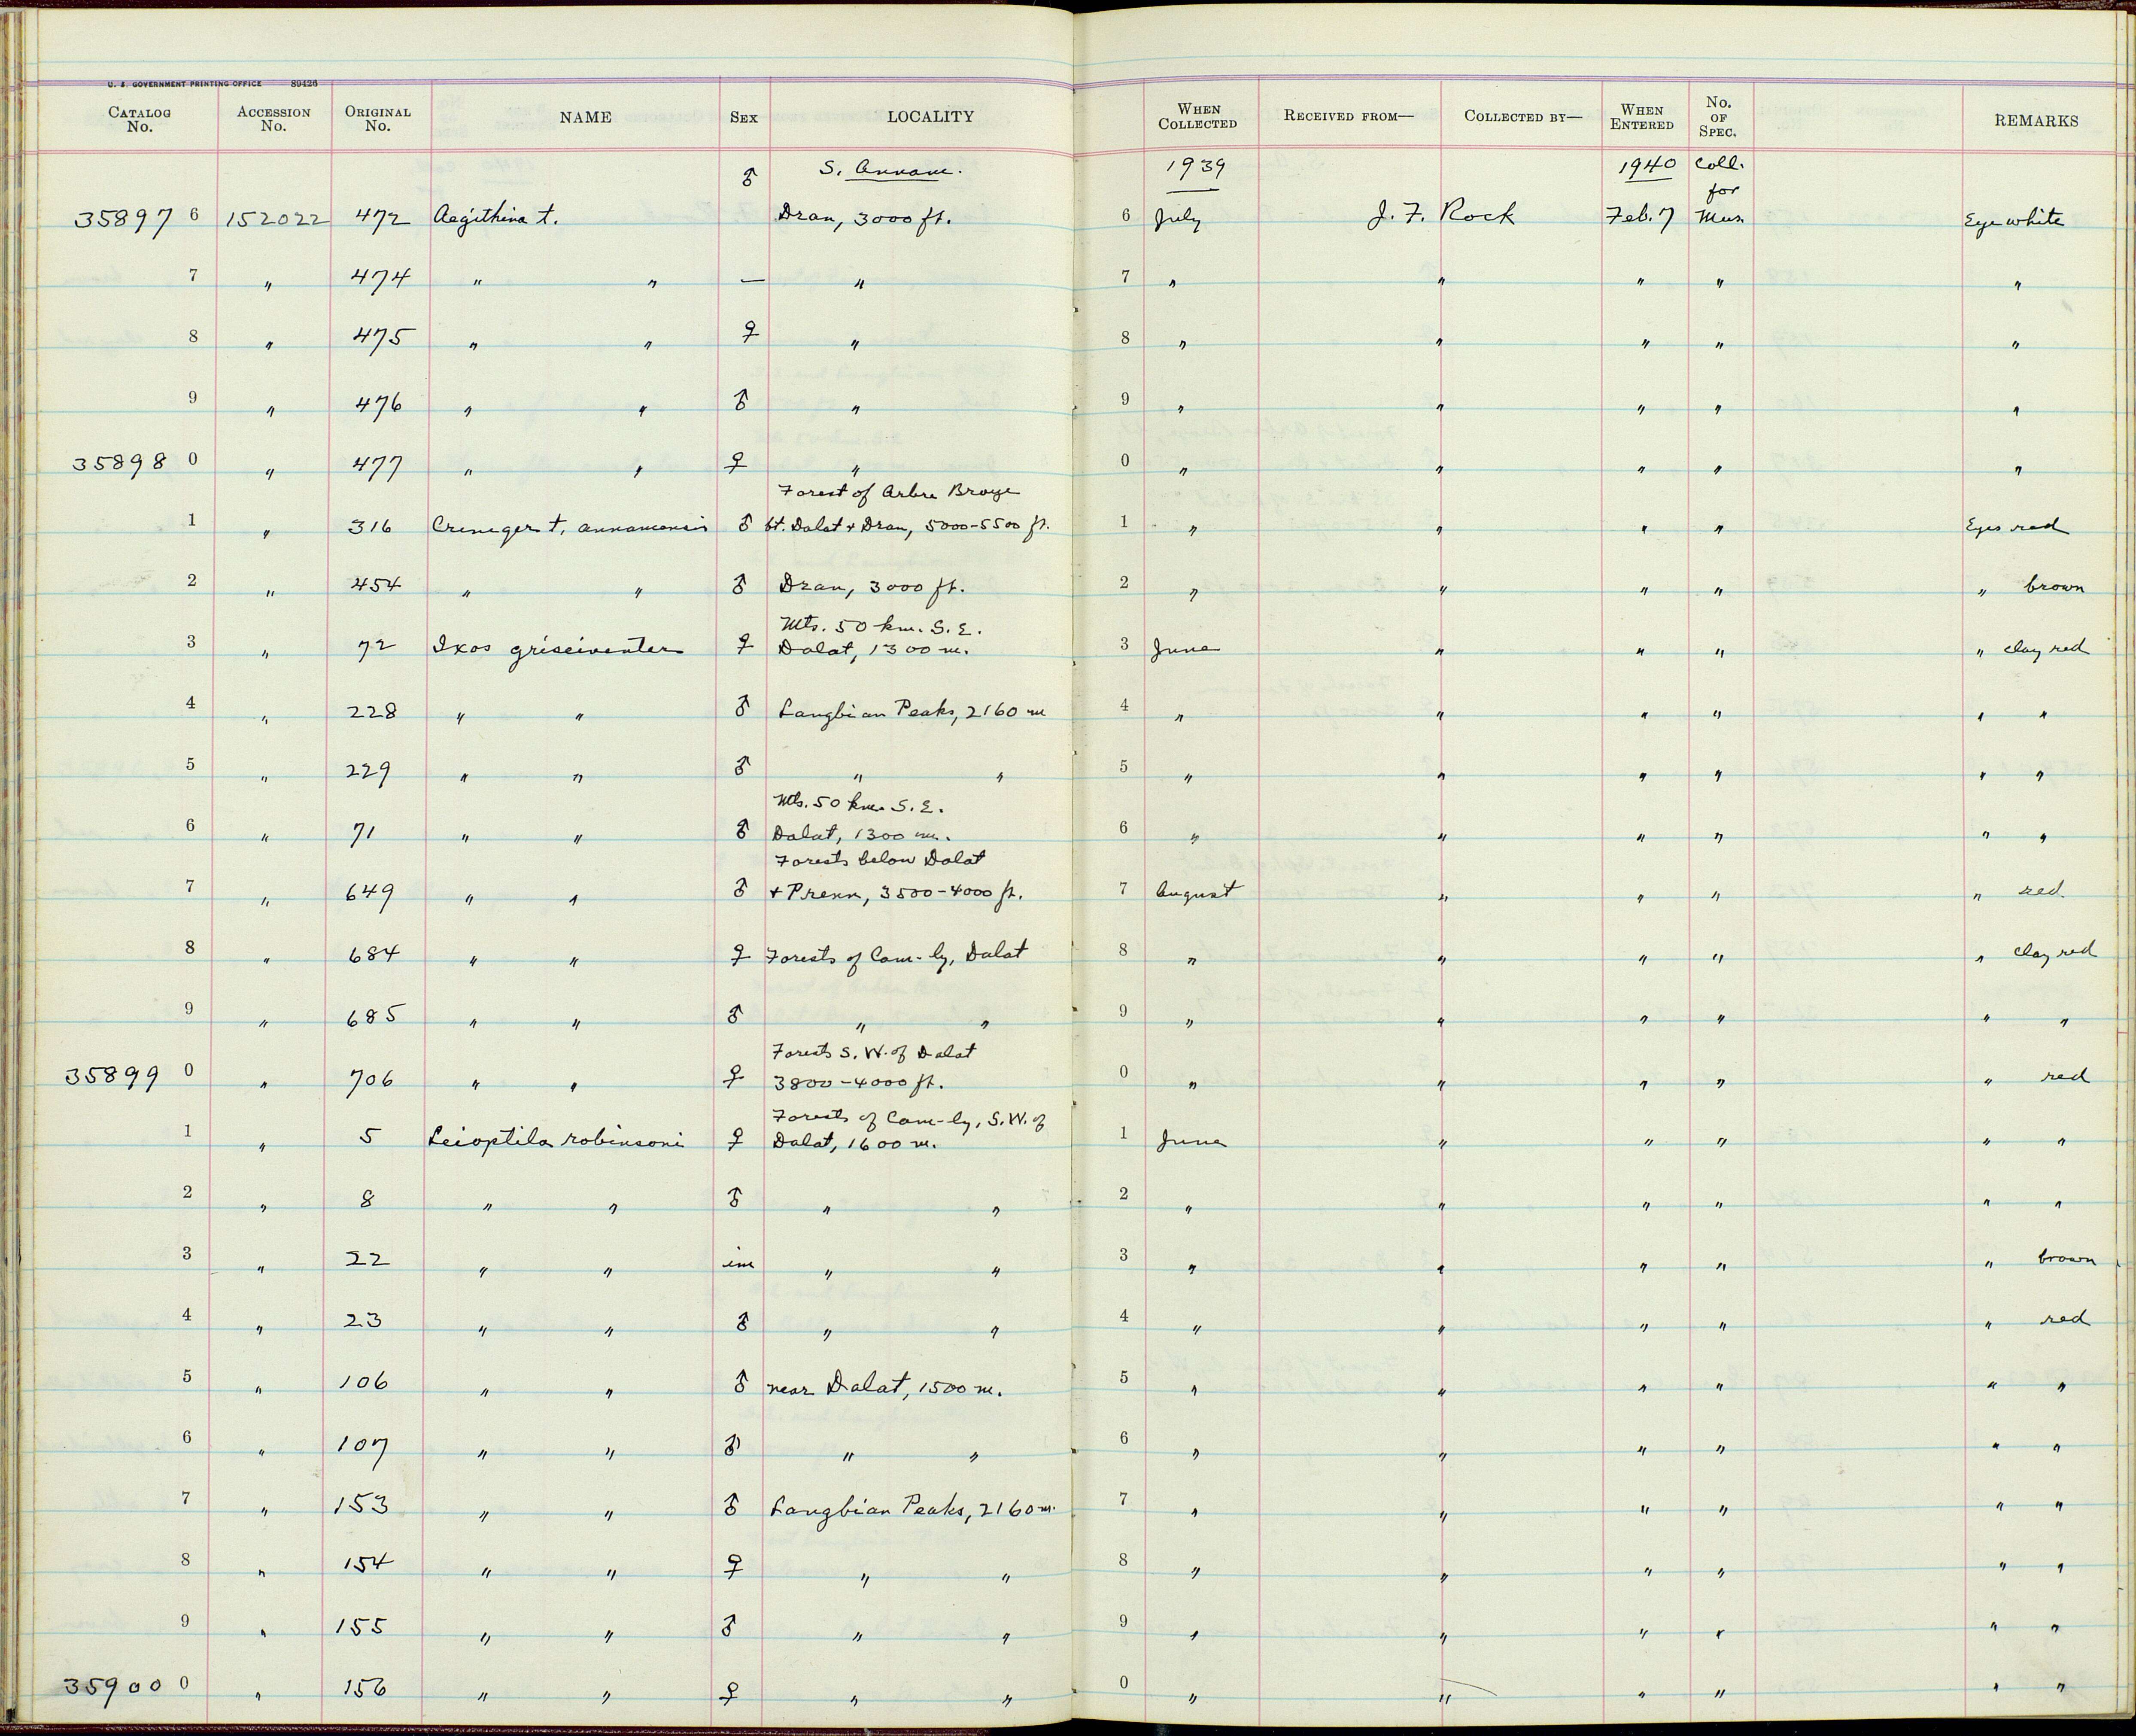 U. S. GOVERNMENT PRINTING OFFICE 89426
CATALOG No. ACCESSION No. ORIGINAL No. NAME SEX LOCALITY WHEN COLLECTED RECEIVED FROM— COLLECTED BY— WHEN ENTERED No. OF SPEC. REMARKS
♂ S. Annam. 1939 1940 Coll. for
35897 6 152022 472 Aegithina t. Dran, 3000 ft. 6 July J. F. Rock Feb. 7 Mus. Eye white
7 " 474 " " — " 7 " " " " "
8 " 475 " " ♀ " 8 " " " " "
9 " 476 " " ♂ " 9 " " " " "
35898 0 " 477 " " ♀ " 0 " " " " "
Forest of Arbre Broye
1 " 316 Criniger t. annamensis ♂ bt. Dalat + Dran, 5000-5500 ft. 1 " " " " Eyes red
2 " 454 " " ♂ Dran, 3000 ft. 2 " " " " " brown
Mts. 50 km. S.E.
3 " 72 Ixos griseiventer ♀ Dalat, 1300 m. 3 June " " " " clay red
4 " 228 " " ♂ Langbian Peaks, 2160 m 4 " " " " " "
5 " 229 " " ♂ " " 5 " " " " " "
Mts. 50 km. S.E.
6 " 71 " " ♂ Dalat, 1300 m. 6 " " " " " "
Forests below Dalat
7 " 649 " " ♂ + Prenn, 3500-4000 ft. 7 August " " " " red
8 " 684 " " ♀ Forests of Cam-ly, Dalat 8 " " " " " clay red
9 " 685 " " ♂ " " 9 " " " " " "
Forests S.W. of Dalat
35899 0 " 706 " " ♀ 3800-4000 ft. 0 " " " " " red
Forests of Cam-ly, S.W. of
1 " 5 Leioptila robinsoni ♀ Dalat, 1600 m. 1 June " " " " "
2 " 8 " " ♂ " " 2 " " " " " "
3 " 22 " " im " " 3 " " " " " brown
4 " 23 " " ♂ " " 4 " " " " " red
5 " 106 " " ♂ near Dalat, 1500 m. 5 " " " " " "
6 " 107 " " ♂ " " 6 " " " " " "
7 " 153 " " ♂ Langbian Peaks, 2160 m. 7 " " " " " "
8 " 154 " " ♀ " " 8 " " " " " "
9 " 155 " " ♂ " " 9 " " " " " "
35900 0 " 156 " " ♀ " " 0 " " " " " "